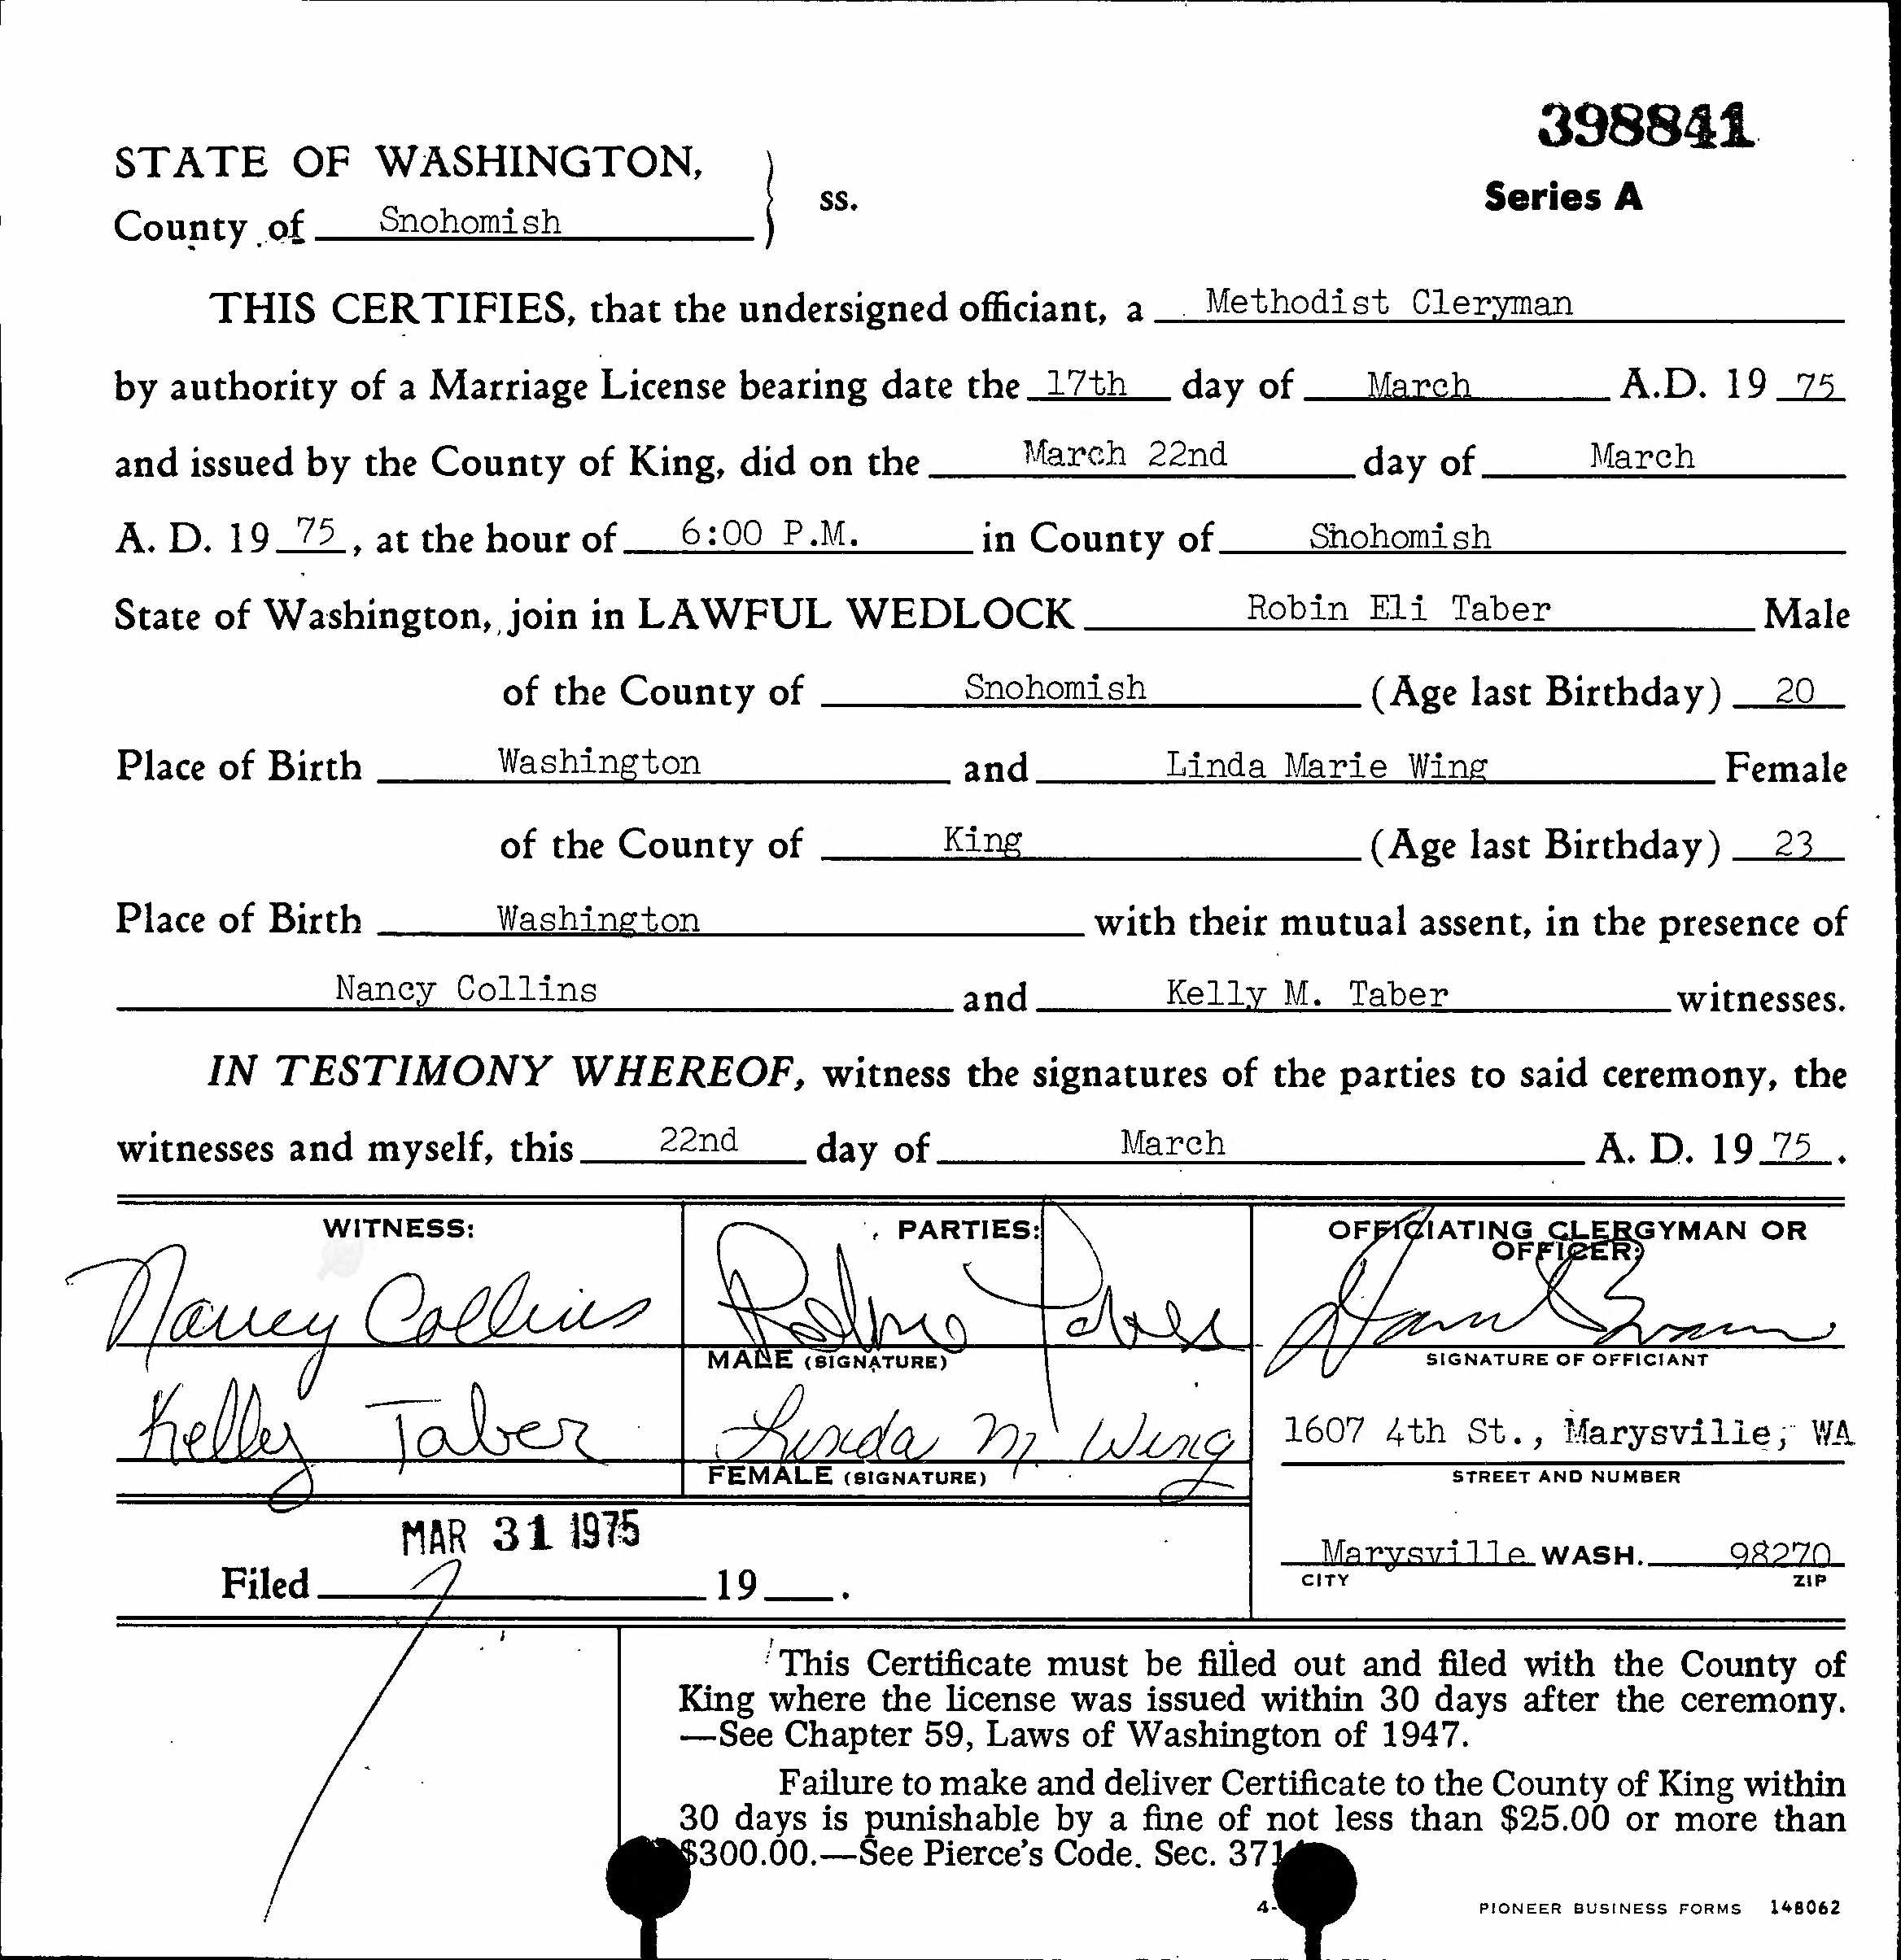 398841
STATE OF WASHINGTON,
ss.
Series A
County of Snohomish
THIS CERTIFIES, that the undersigned officiant, a Methodist Cleryman
by authority of a Marriage License bearing date the 17th day of March A.D. 19 75
and issued by the County of King, did on the March 22nd day of March
A. D. 19 75, at the hour of 6:00 P.M. in County of Snohomish
State of Washington, join in LAWFUL WEDLOCK Robin Eli Taber Male
of the County of Snohomish (Age last Birthday) 20
Place of Birth Washington and Linda Marie Wing Female
of the County of King (Age last Birthday) 23
Place of Birth Washington with their mutual assent, in the presence of
Nancy Collins and Kelly M. Taber witnesses.
IN TESTIMONY WHEREOF, witness the signatures of the parties to said ceremony, the
witnesses and myself, this 22nd day of March A. D. 19 75.
WITNESS: PARTIES: OFFICIATING CLERGYMAN OR
OFFICER:
Nancy Collins Robin Taber
MALE (SIGNATURE) SIGNATURE OF OFFICIANT
Kelley Taber Linda M. Wing 1607 4th St., Marysville, WA
FEMALE (SIGNATURE) STREET AND NUMBER
MAR 31 1975
Marysville WASH. 98270
Filed 19 .
CITY ZIP
This Certificate must be filled out and filed with the County of
King where the license was issued within 30 days after the ceremony.
—See Chapter 59, Laws of Washington of 1947.
Failure to make and deliver Certificate to the County of King within
30 days is punishable by a fine of not less than $25.00 or more than
$300.00.—See Pierce's Code. Sec. 371
4-
PIONEER BUSINESS FORMS 148062